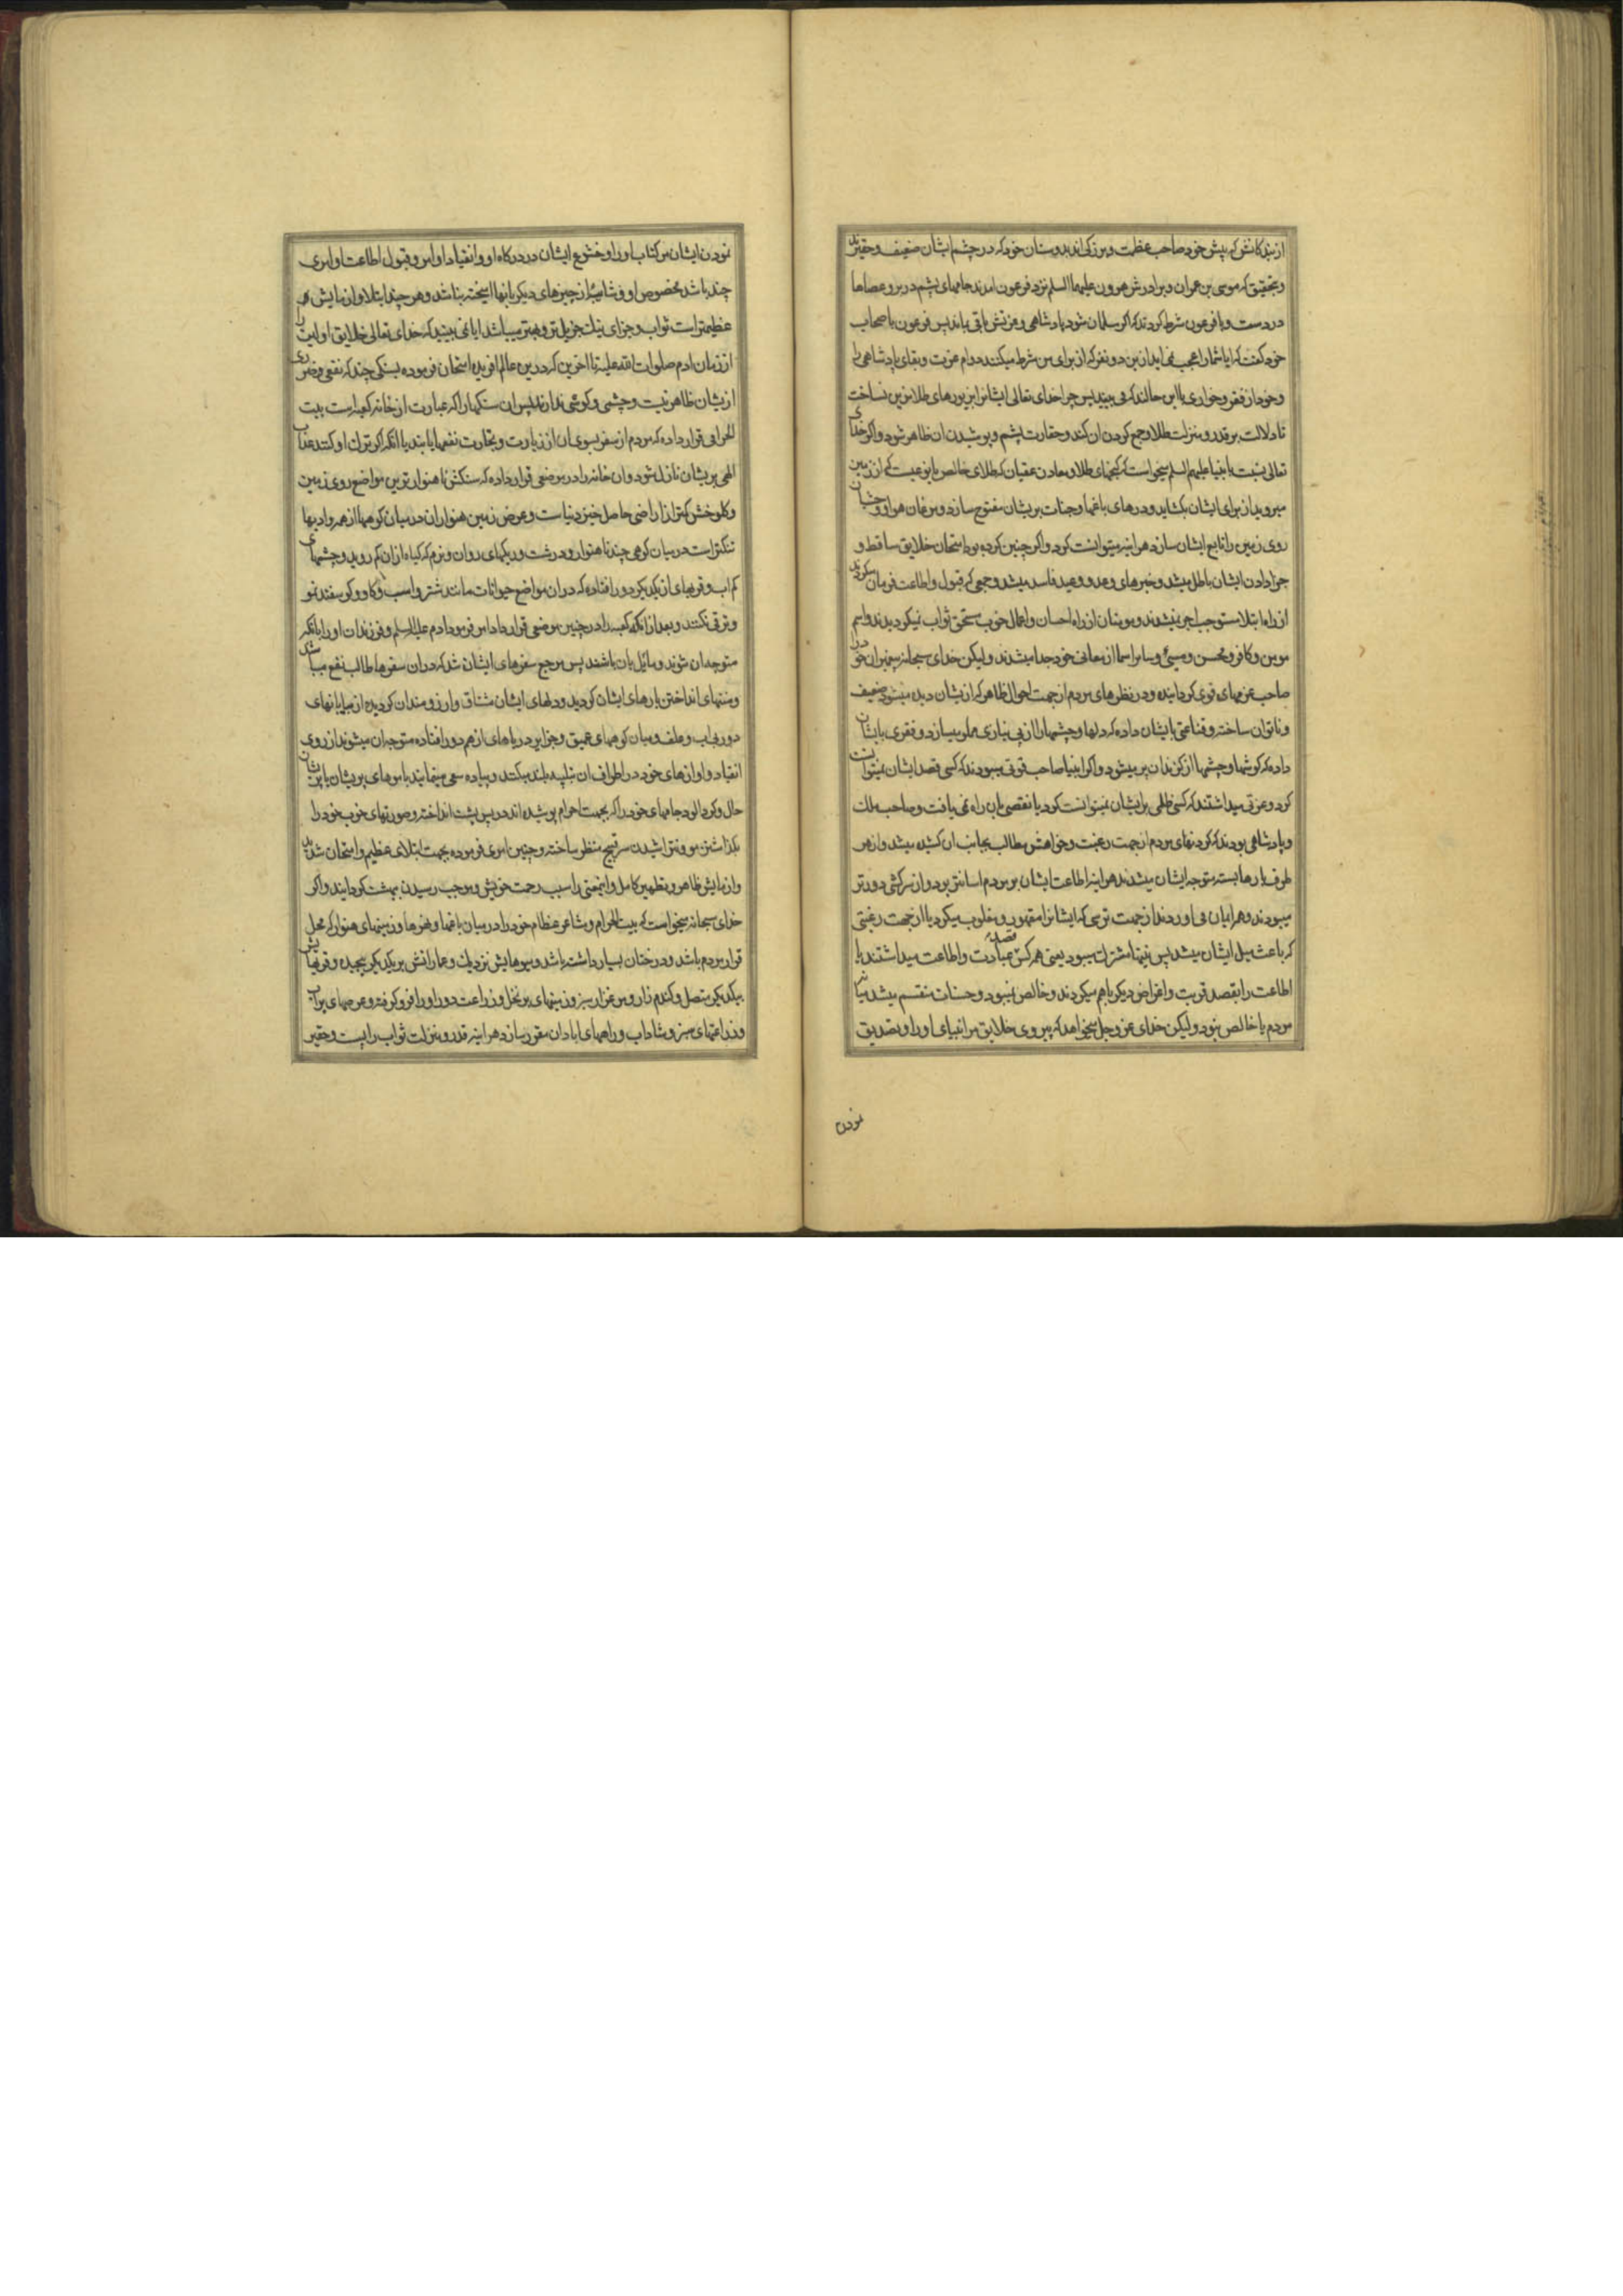 از بندکانش که پیش خود صاحب عظمت و بزرکی اند بدوستان خود که در چشم ایشان ضعیف و حقیرند
و بتحقیق که موسی بن عمران و برادرش هرون علیهما السلم نزد فرعون امدند جامهای پشم در بر و عصاها
در دست و با فرعون شرط کردند که اکر مسلمان شود پادشاهی و عزتش باقی بماند پس فرعون باصحاب
خود کفت که ایا شما را عجب نمی اید ازین دو نفر که از برای من شرط میکنند دوام عزت و بقای پادشاهی را
و خود از فقر و خواری باین حالند که می بینید پس چرا خدای تعالی ایشانرا بزیورهای طلا مزین نساخت
تا دلالت بر قدر و منزلت طلا و جمع کردن ان کند و حقارت پشم و پوشیدن ان ظاهر شود و اکر خدای
تعالی نسبت بانبیا علیهم السلم میخواست که کنجهای طلا و معادن عقیان که طلای خالص یا نوعیست که از زمین
میروید از برای ایشان بکشاید و درهای باغها و جنات بریشان مفتوح سازد و مرغان هوا و وحشیان
روی زمین را تابع ایشان سازد هر اینه میتوانست کرد و اکر چنین کرده بود امتحان خلایق ساقط و
جزا دادن ایشان باطل میشد و خبرهای وعد و وعید فاسد میشد و جمعی که قبول و اطاعت فرمان میکردند
از راه ابتلا مستوجب اجر نمیشدند و مومنان از راه احسان و اعمال خوب مستحق ثواب نمیکردیدند و اسم
مومن و کافر و محسن و مسیئ و سایر اسما از معانی خود جدا میشدند ولیکن خدای سبحانه پیغمبران خود را
صاحب عزمهای قوی کردانیده و در نظرهای مردم از جهت احوال ظاهر که ازیشان دیده میشود ضعیف
و ناتوان ساخته و قناعتی بایشان داده که دلها و چشمها را از بی نیازی مملو میسازد و فقری بایشان
داده که کوشها و چشمها از کزند ان پر میشود و اکر انبیا صاحب قوتی میبودند که کسی قصد ایشان نمیتوانست
کرد و عزتی میداشتند که کسی ظلمی برایشان نمیتوانست کرد یا نقصی بان راه نمی یافت و صاحب ملک
و پادشاهی بودند که کردنهای مردم از جهت رغبت و خواهش مطالب بجانب ان کشیده میشد و از هر
طرف بارها بسته متوجه ایشان میشدند هر اینه اطاعت ایشان بر مردم اسانتر بود و از سرکشی دورتر
میبودند و هر ایمان می اوردند از جهت ترسی که ایشانرا مقهور و مغلوب میکرد یا از جهت رغبتی
که باعث میل ایشان میشد پس نیتها مشترک میبود یعنی همه کس قصد عبادت و اطاعت میداشتند یا
اطاعت را بقصد قربت و اغراض دیکر باهم میکردند و خالص نمیبود و حسنات منقسم میشد میان
مردم یا خالص نبود ولیکن خدای عز و جل میخواهد که پیروی خلایق مر انبیای او را و تصدیق
نمودن
نمودن ایشان مر کتاب او را و خشوع ایشان در درکاه او و انقیاد اوامر و قبول اطاعت او امری
چند باشد مخصوص او و شایبهٔ از چیزهای دیکر بانها امیخته نباشد و هر چند ابتلا و ازمایش
عظیمتر است ثواب و جزای نیک جزیل تر و بهتر میباشد ایا نمی بینید که خدای تعالی خلایق اولین را
از زمان ادم صلوات الله علیه تا اخرین که درین عالم افریده امتحان فرموده بسنکی چند که نفعی و ضرری
ازیشان ظاهر نیست و چشمی و کوشی ندارند پس ان سنکها را که عبارت از خانه کعبه است بیت
الحرامی قرار داده که مردم از سفر بسوی ان از زیارت و تجارت نفعها یابند یا انکه اکر ترک او کنند عذاب
الهی بریشان نازل شود و ان خانه را در موضعی قرار داده که سنکش ناهموارترین مواضع روی زمین
و کلوخش کمتر از اراضی حاصل خیز دنیاست و عرض زمین هموار ان در میان کوهها از همه وادیها
تنکتر است در میان کوهی چند ناهموار و درشت و ریکهای روان و نرم که کیاه از ان کم روید و چشمهای
کم اب و قریهای از یکدیکر دور افتاده که در ان مواضع حیوانات مانند شتر و اسب و کاو و کوسفند نمو
و ترقی نکنند و بعد از انکه کعبه را در چنین موضعی قرار داد امر فرمود ادم علیه السلم و فرزندان او را بانکه
متوجه ان شوند و مائل بان باشند پس مرجع سفرهای ایشان شد که در ان سفرها طالب نفع میباشند
و منتهای انداختن بارهای ایشان کردید و دلهای ایشان مشتاق و ارزومند ان کردیده از بیابانهای
دور بی اب و علف و میان کوههای عمیق و جزایر دریاهای از هم دور افتاده متوجه ان میشوند از روی
انقیاد و اوازهای خود در اطراف ان بتلبیه بلند میکنند و پیاده سعی مینمایند با موهای پریشان با پریشان
حال و کرد الود جامهای خود را که بجهت احرام پوشیده اند در پس پشت انداخته و صورتهای خوب خود را
بکذاشتن مو و نتراشیدن سر قبیح منظر ساخته و چنین امری فرموده بجهت ابتلای عظیم و امتحان شدید
و ازمایش ظاهر و تطهیر کامل و اینمعنی را سبب رحمت خویش و موجب رسیدن ببهشت کردانید و اکر
خدای سبحانه میخواست که بیت الحرام و مشاعر عظام خود را در میان باغها و نهرها و زمینهای هموار که محل
قرار مردم باشد و درختان بسیار داشته باشد و میوهایش نزدیک و عماراتش بر یکدیکر پیچیده و قریهایش
بیکدیکر متصل و کندم زار و مرغزار سبز و زمینهای پر نخل و زراعت دور او را فرو کرفته و عرصهای پر اب
و زراعتهای سبز و شاداب و راههای ابادان مقرر سازد هر اینه قدر و منزلت ثواب را پست و حقیر